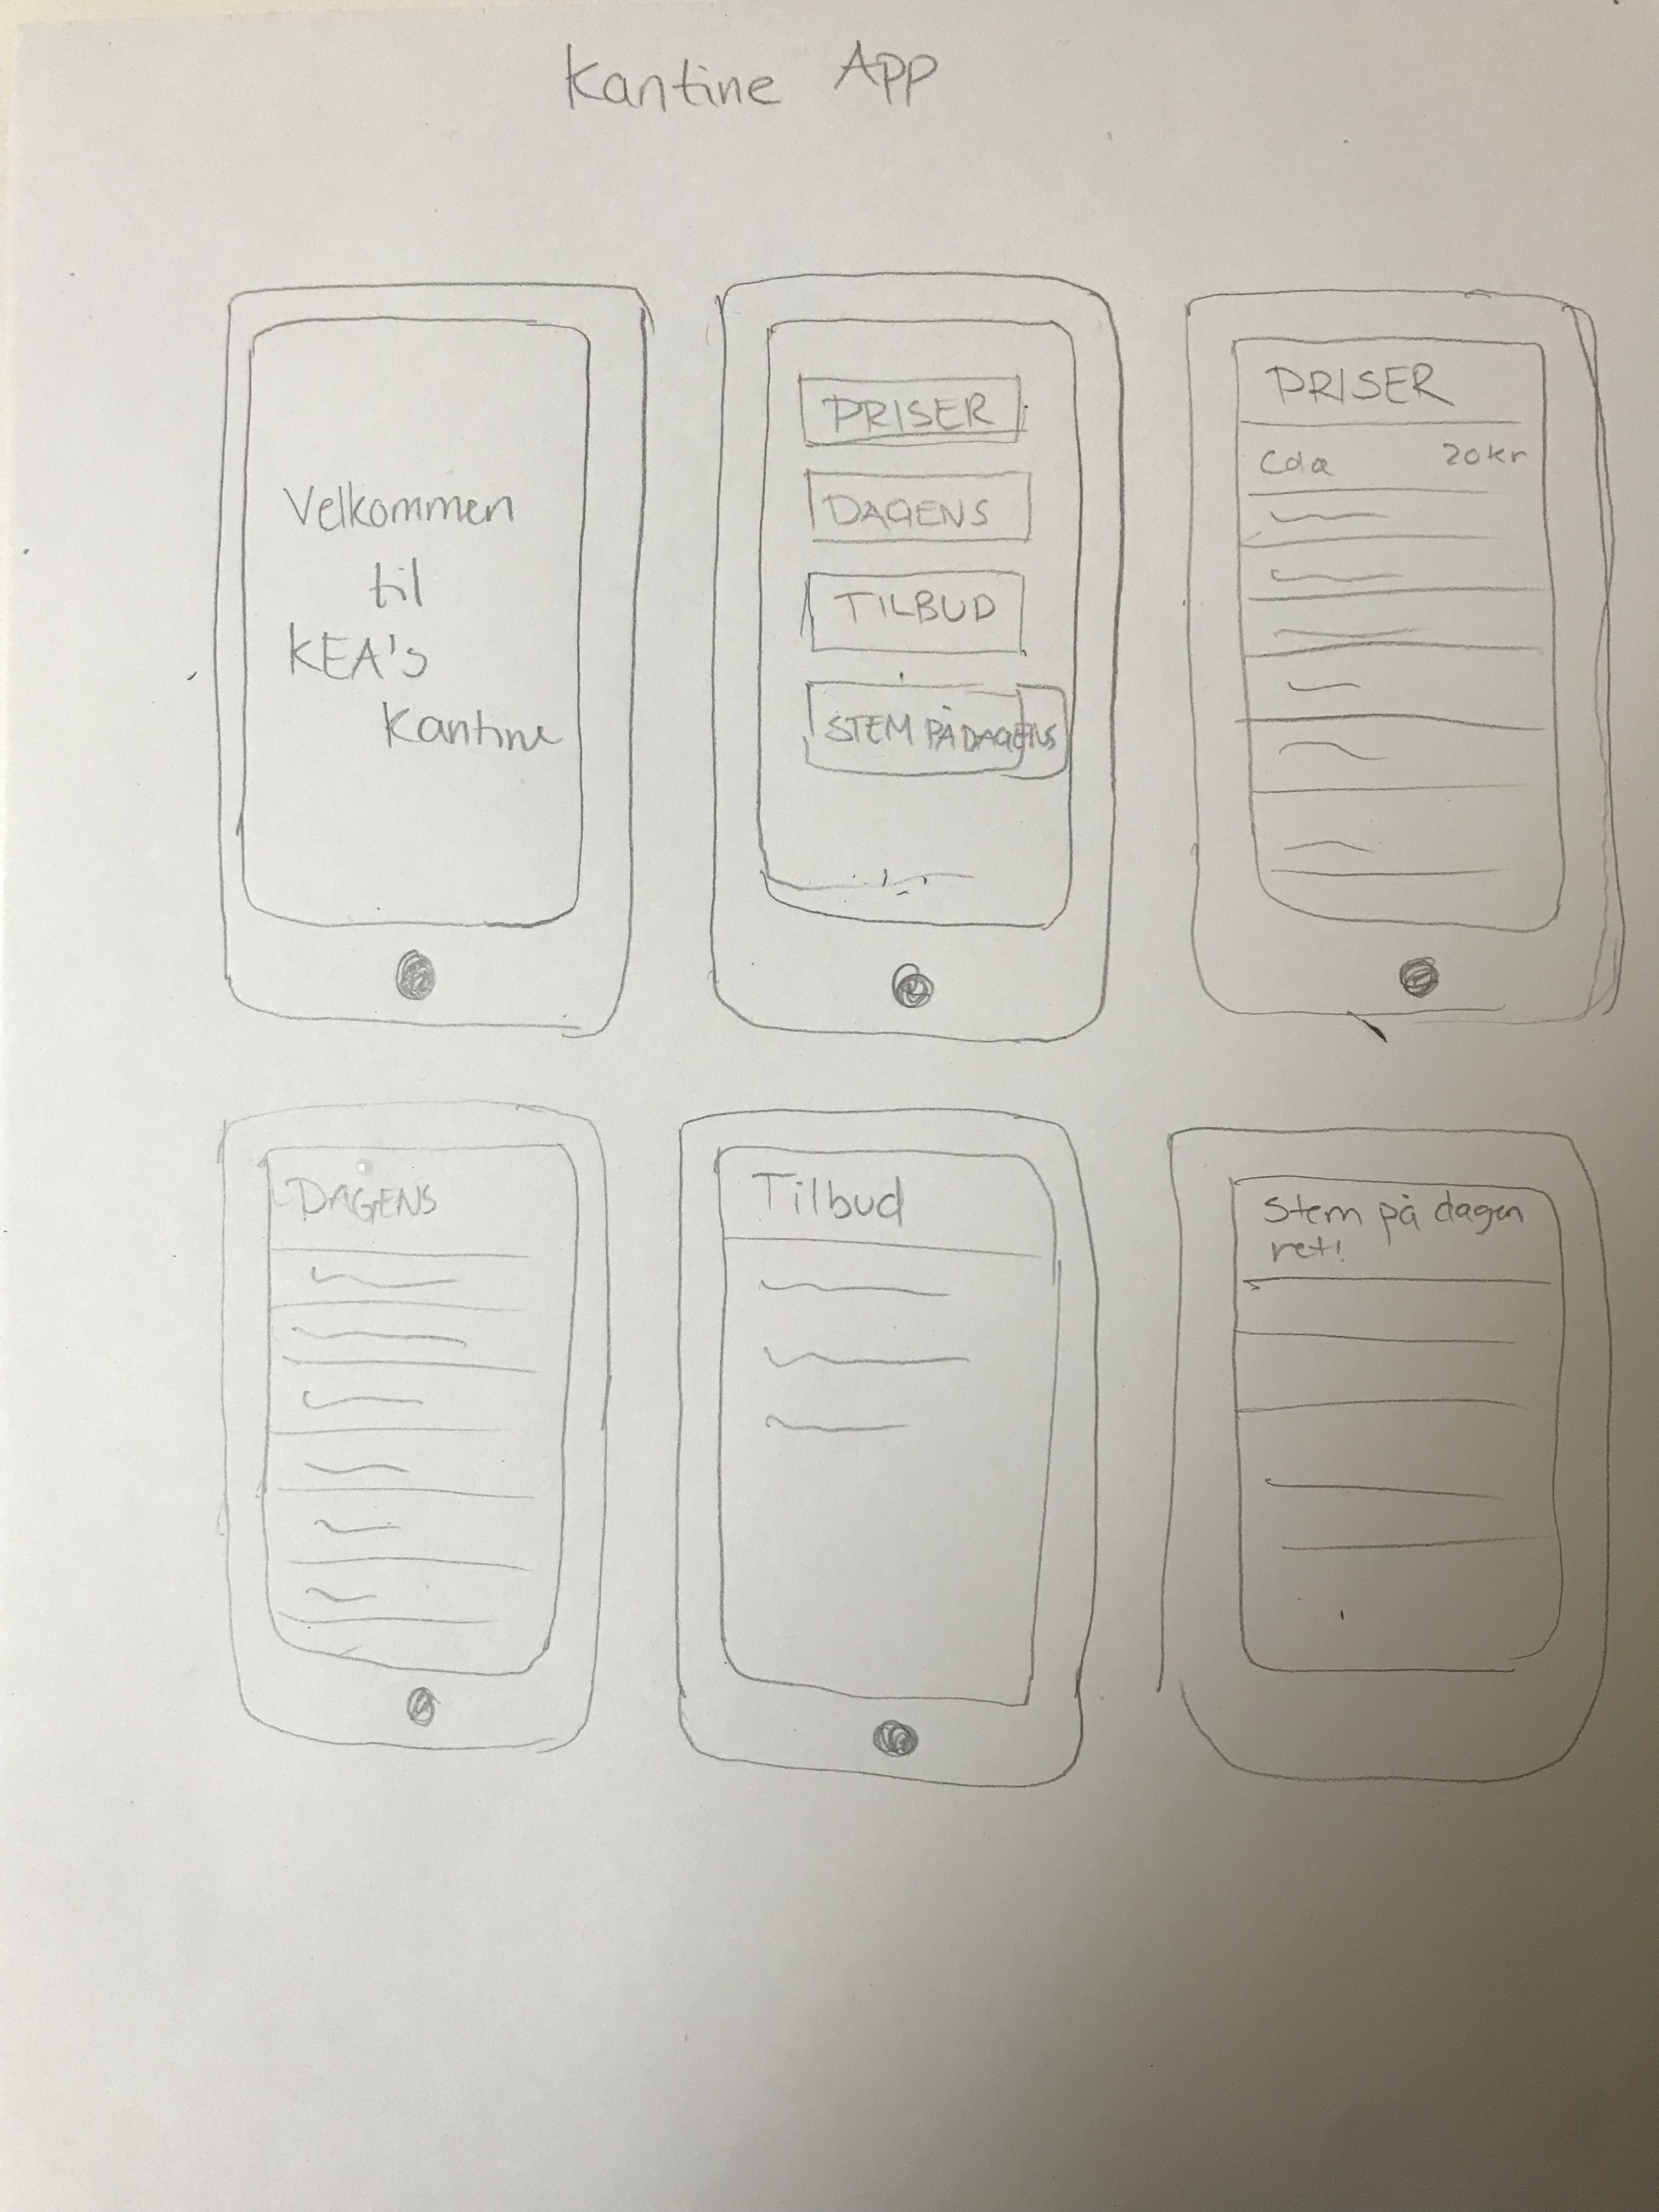 Kantine App
Velkommen
til
KEA's
Kantine
PRISER
DAGENS
TILBUD
STEM PÅ DAGENS
PRISER
Cola 20kr
DAGENS
Tilbud
Stem på dagen
ret!